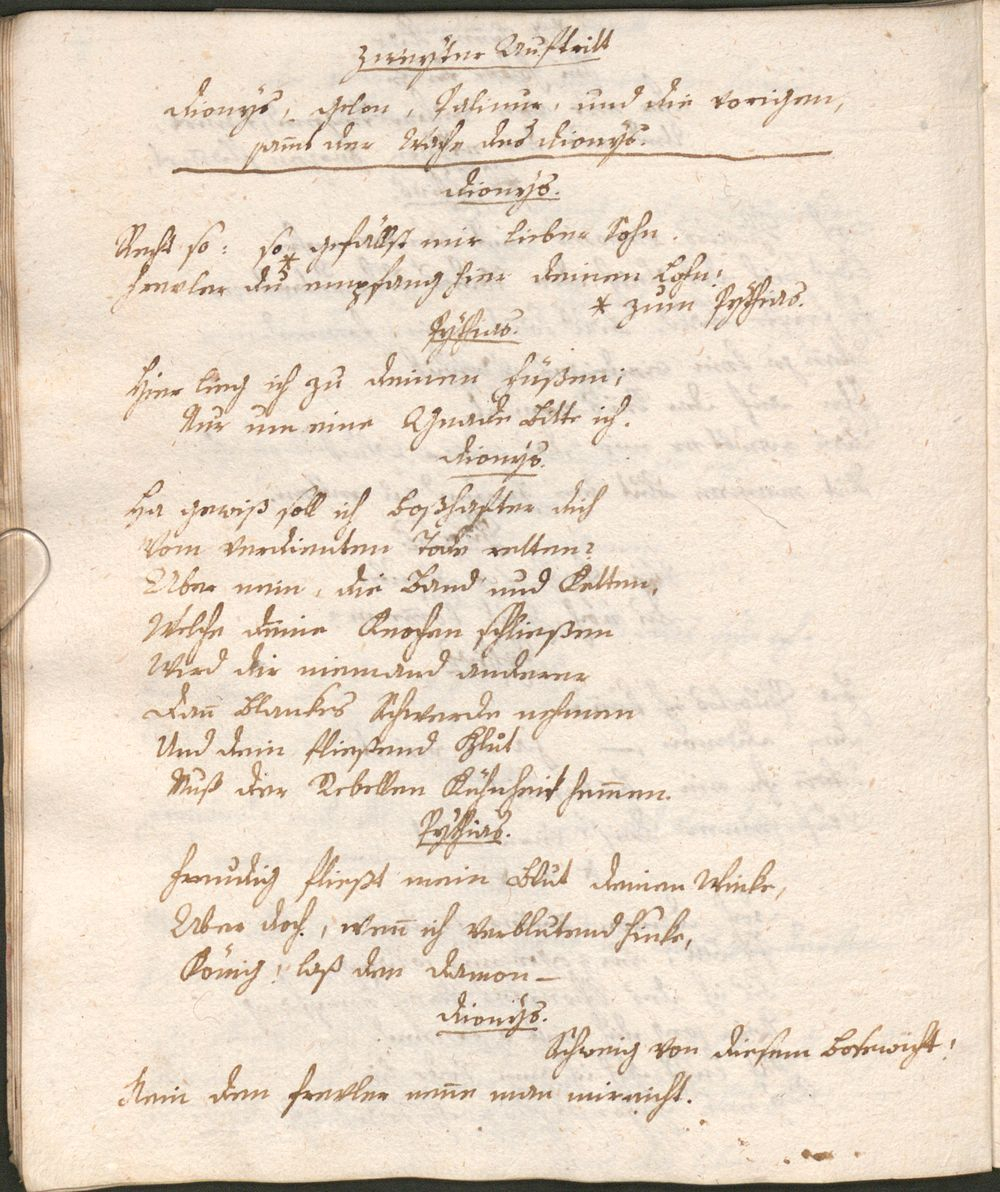 Zweyter Auftritt
Dionys, Gelon, Palinur, und die vorigen,
sam̄t der Wache des Dionys.
Dionys.
Recht so: so gefällst mir lieber Sohn.
Frevler du * empfang hier deinen Lohn!
* zum Pythias.
Pythias.
Hier lieg ich zu deinen Füßen;
Nur um eine Gnade bitte ich.
Dionys.
Ha gewiß soll ich boßhafter dich
Vom verdienten Tode retten?
Aber nein, die Band und Ketten,
Welche deine Knochen schließen
Wird dir niemand anderer
Dan̄ blankes Schwerde nehmen
Und dein fließend Blut
Muß der Rebellen Kühnheit hem̄en.
Pythias.
Freudig fließt mein Blut deinen Winke,
Aber doch, wen̄ ich verblutend sinke,
König! laß den Damon –
Dionys.
Schweig von diesem Bösewicht!
Nein den Frevler nen̄e man mir nicht.